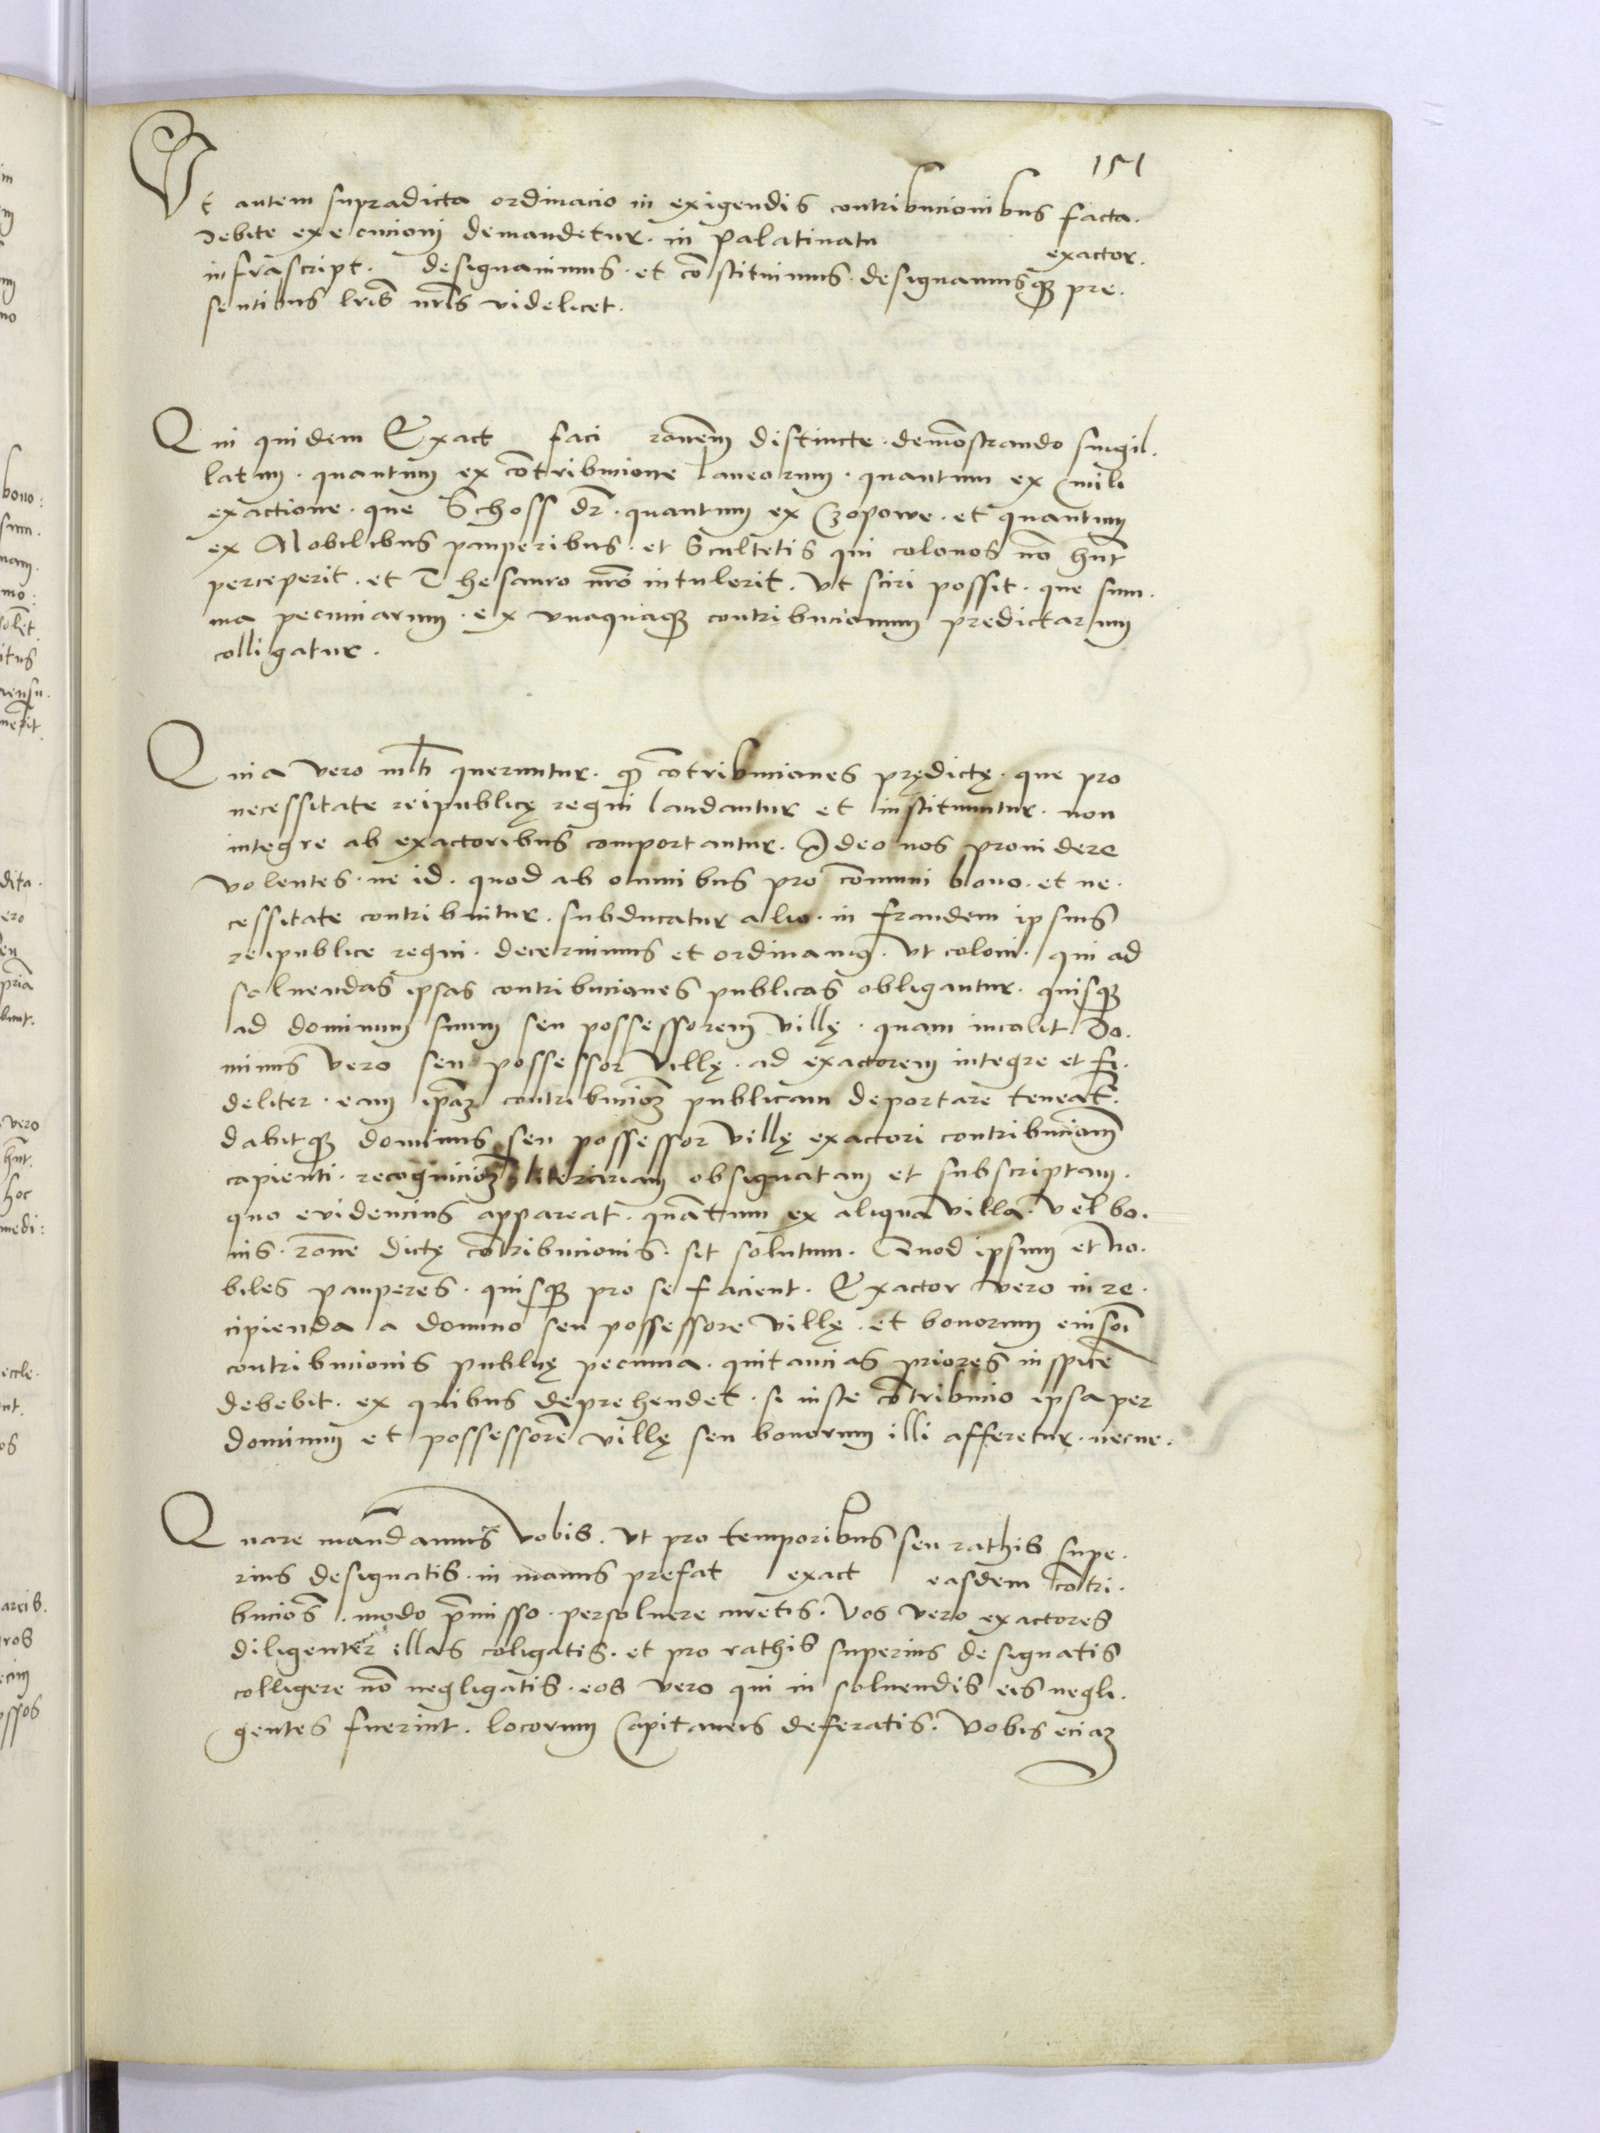 151
Ut autem supradicta ordinacio in exigendis contribucionibus facta.
debite execucioni demandetur. in Palatinatu exactor.
infrascript. designavimus. et cōstituimus. designamusqꝫ pre.
sentibus lr̄is nr̄is videlicet.
Qui quidem Exact faci ronem̄ distincte. demōstrando singil.
latim. quantum ex cōtribucione laneorum. quantum ex civili
exactione. que Schoss dr̄. quantum ex Czopowe. et quantum
ex Nobilibus pauperibus. et Scultetis qui colonos nō hn̄t
perceperit. et Thesauro nrō intulerit. Ut sciri possit. que sum.
ma pecuniarum. ex unaquaqꝫ contribucionum predictarum
colligatur.
Quia vero ml̄ti queruntur. qꝫ cōtribuciones prędictę. que pro
necessitate reipublicę regni laudantur et instituuntur. non
integre ab exactoribus comportantur. Ideo nos providere
volentes. ne id. quod ab omnibus pro cōmuni bono. et ne.
cessitate contribuitur. subducatur alio. in fraudem ipsius
reipublice regni. decernimus et ordinamus. Ut coloni. qui ad
solvendas ipsas contribuciones publicas obligantur. quisqꝫ
ad dominum suum seu possessorem villę. quam incolit. Do.
minus vero seu possessor villę. ad exactorem integre et fi.
deliter. eam ip̄aꝫ contribucioꝫ publicam deportare teneat̄.
dabitqꝫ dominus seu possessor villę exactori contribucionem̄
capienti. recognicioꝫ literariam obsignatam et subscriptam.
quo evidencius appareat. quātum ex aliqua villa. vel bo.
nis. rone dictę cōtribucionis. sit solutum. Quod ipsum et no.
biles pauperes. quisqꝫ pro se facient. Exactor vero in re.
cipienda a domino seu possessore villę. et bonorum eiusōi
contribucionis publicę pecunia. quitancias priores inspice
debebit. ex quibus deprehendet. si iuste cōtribucio ipsa per
dominum et possessorē villę seu bonorum illi afferetur. necne.
Quare mandamus vobis. Ut pro temporibus seu rathis supe.
rius designatis. in manus prefat exact easdem cōtri.
bucioēs. modo p̄misso. persolvere curetis. Vos vero exactores
diligenter illas coligatis. et pro rathis superius designatis
colligere nō negligatis. eos vero qui in solvendis eis negli.
gentes fuerint. locorum Capitaneis deferatis. Vobis eciaꝫ